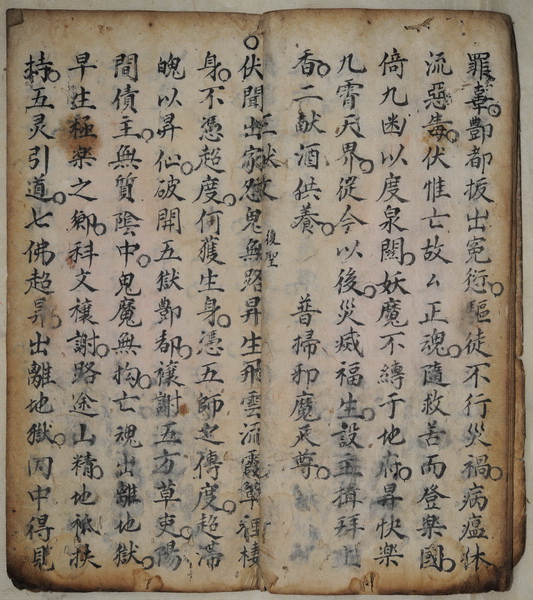 罪業酆都拔出冤愆驅徒不行災禍病瘟休
流惡毒伏惟亡故厶正魂隨救苦而登樂國
倚九幽以度泉關妖魔不縳于地府昇快樂
九霄天界從今以後災㓕福生設主稽拜上
香二献酒供養 普掃邪魔天尊
三献文 後聖
伏聞出家恐鬼無路昇生飛雲流霞輦裡棲
身不憑超度何獲生身憑五師之傳度超滯
魄以昇仙破開五獄酆都禳謝五方草吏陽
間債主無質陰中鬼魔無拘亡魂出離地獄
早生極樂之鄉科文禳謝路途山精地祇扶
持五灵引道七佛超昇出離地獄冈中得見